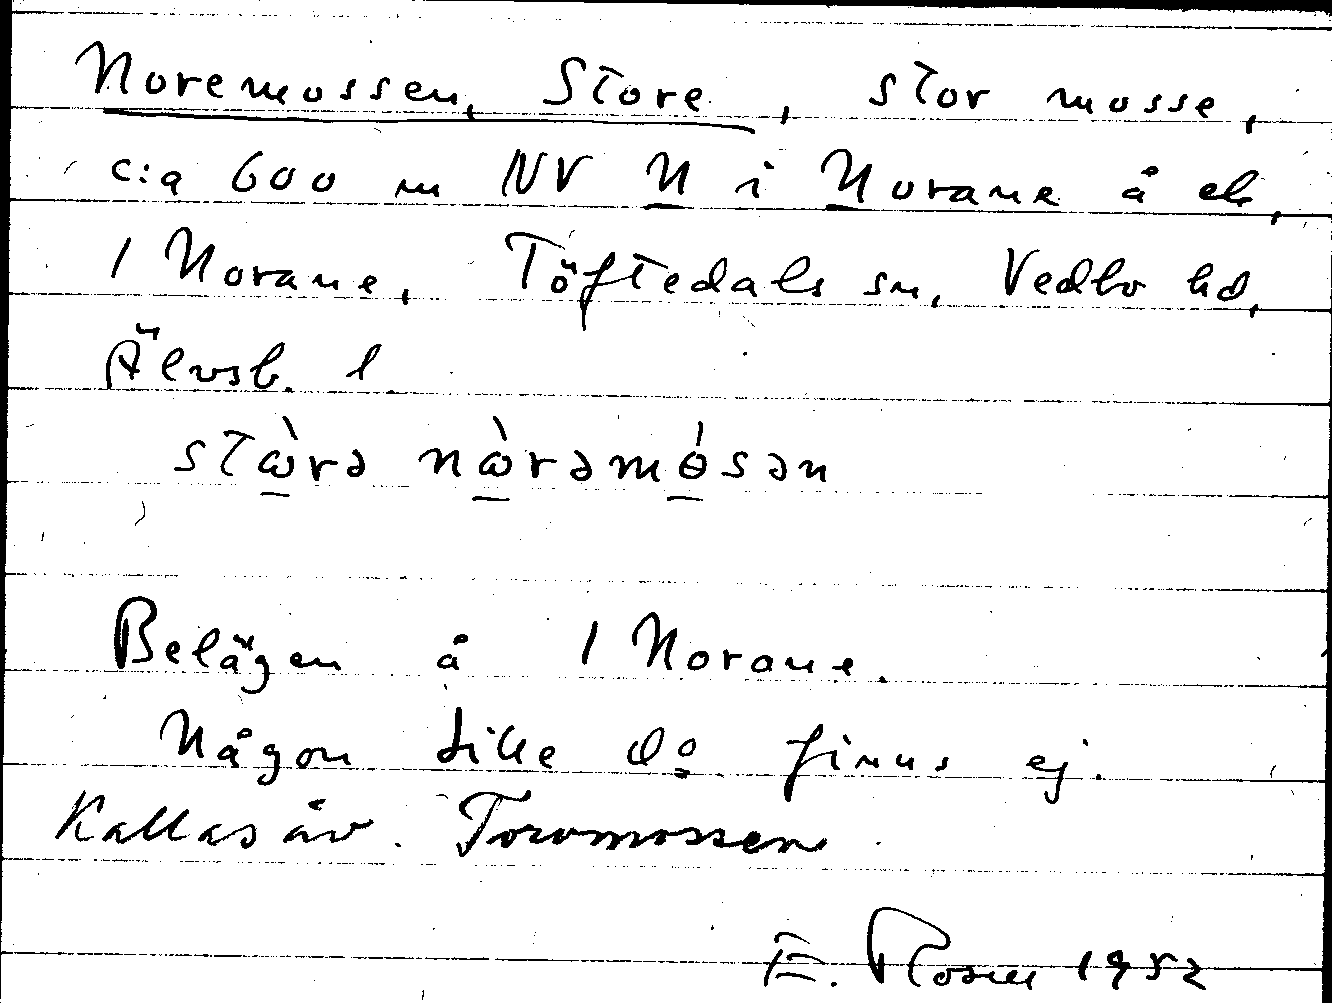 Noremossen, Store, stor mosse,
c:a 600 m NV N i Norane å ek,
1 Norane, Töftedals sn, Vedbo hd,
Älvsb. l.
stὼrə nὼrəmósən
Belägen å 1 Norane.
Någon Lille do finns ej.
Kallas äv. Torvmossen.
E. 1952